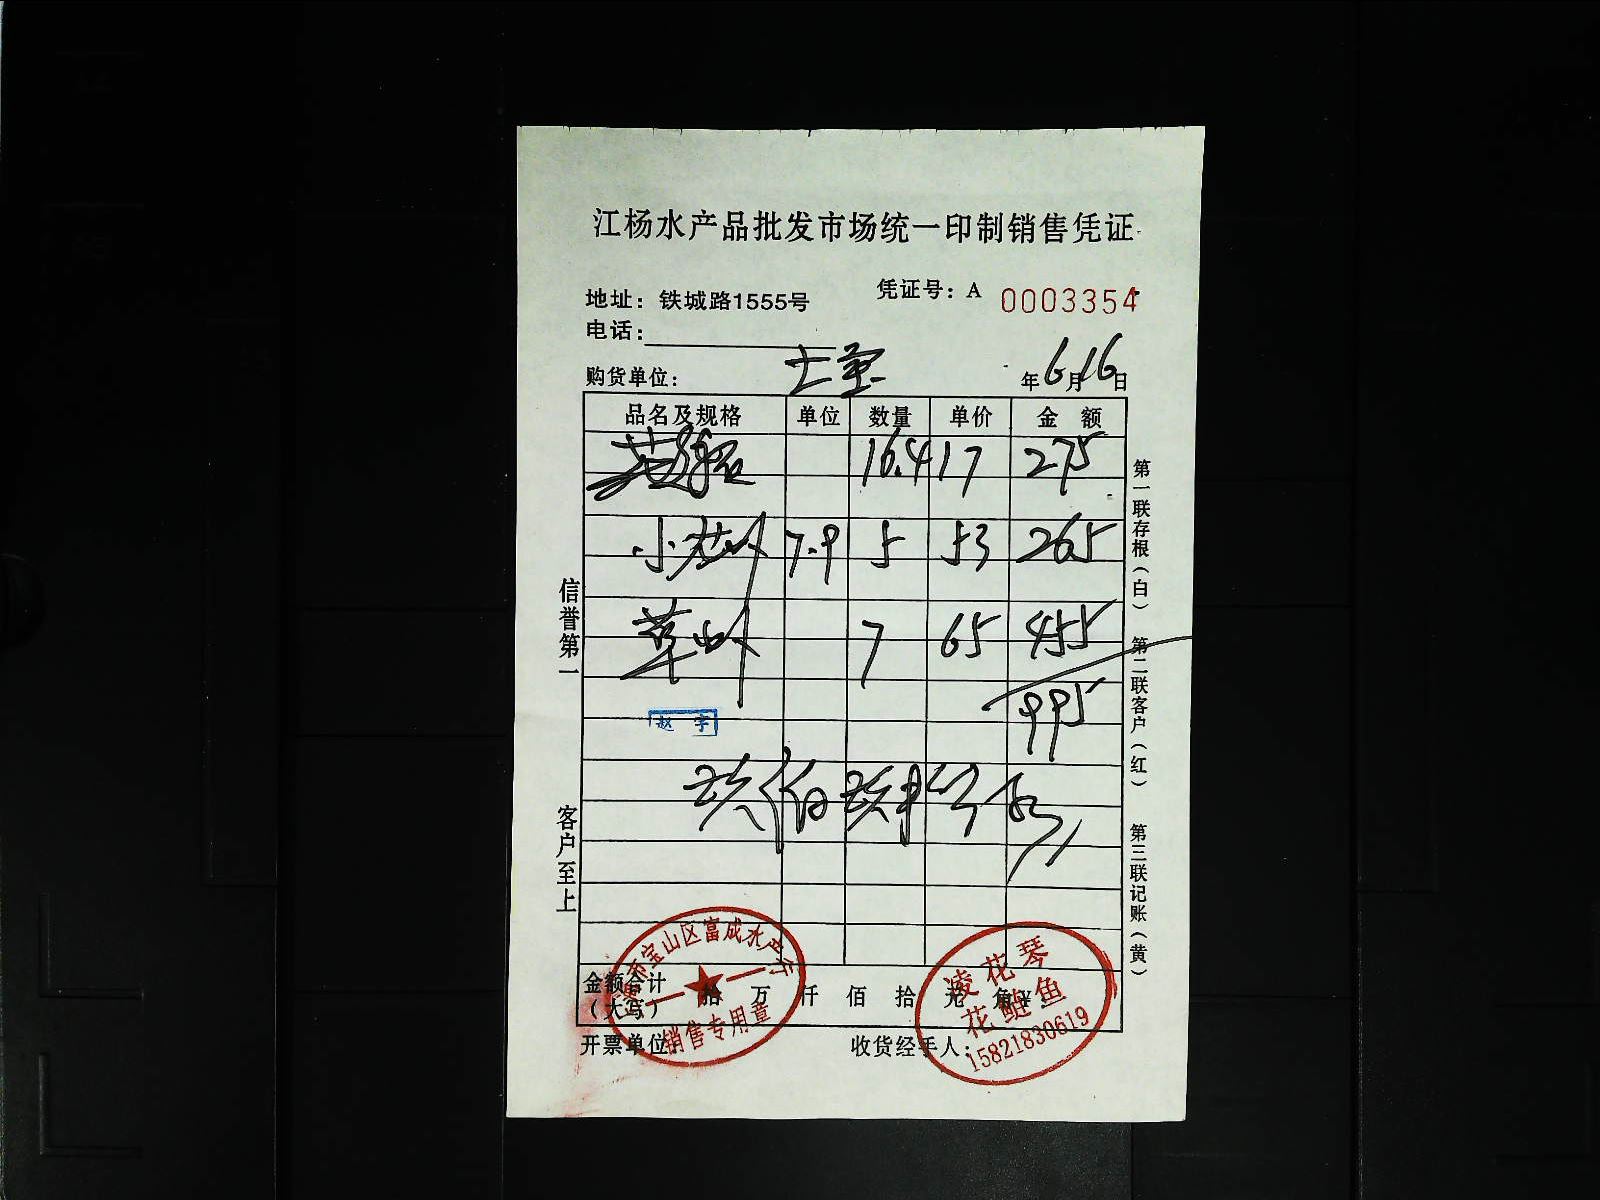 江杨水产品批发市场统一印制销售凭证
地址：铁城路1555号
凭证号：A 0003354
电话：
购货单位：
年6月16日
品名及规格 单位 数量 单价 金 额
16.4 17 275
小 7.9 5 53 265
草 7 65 455
995
赵 宇
玖佰玖拾
信誉第一
客户至上
第一联存根（白）
第二联客户（红）
第三联记账（黄）
市宝山区富成水产行
销售专用章
凌花琴
花鲢鱼
15821830619
金额合计
（大写） 拾 万 仟 佰 拾 元 角 ¥
开票单位
收货经手人：